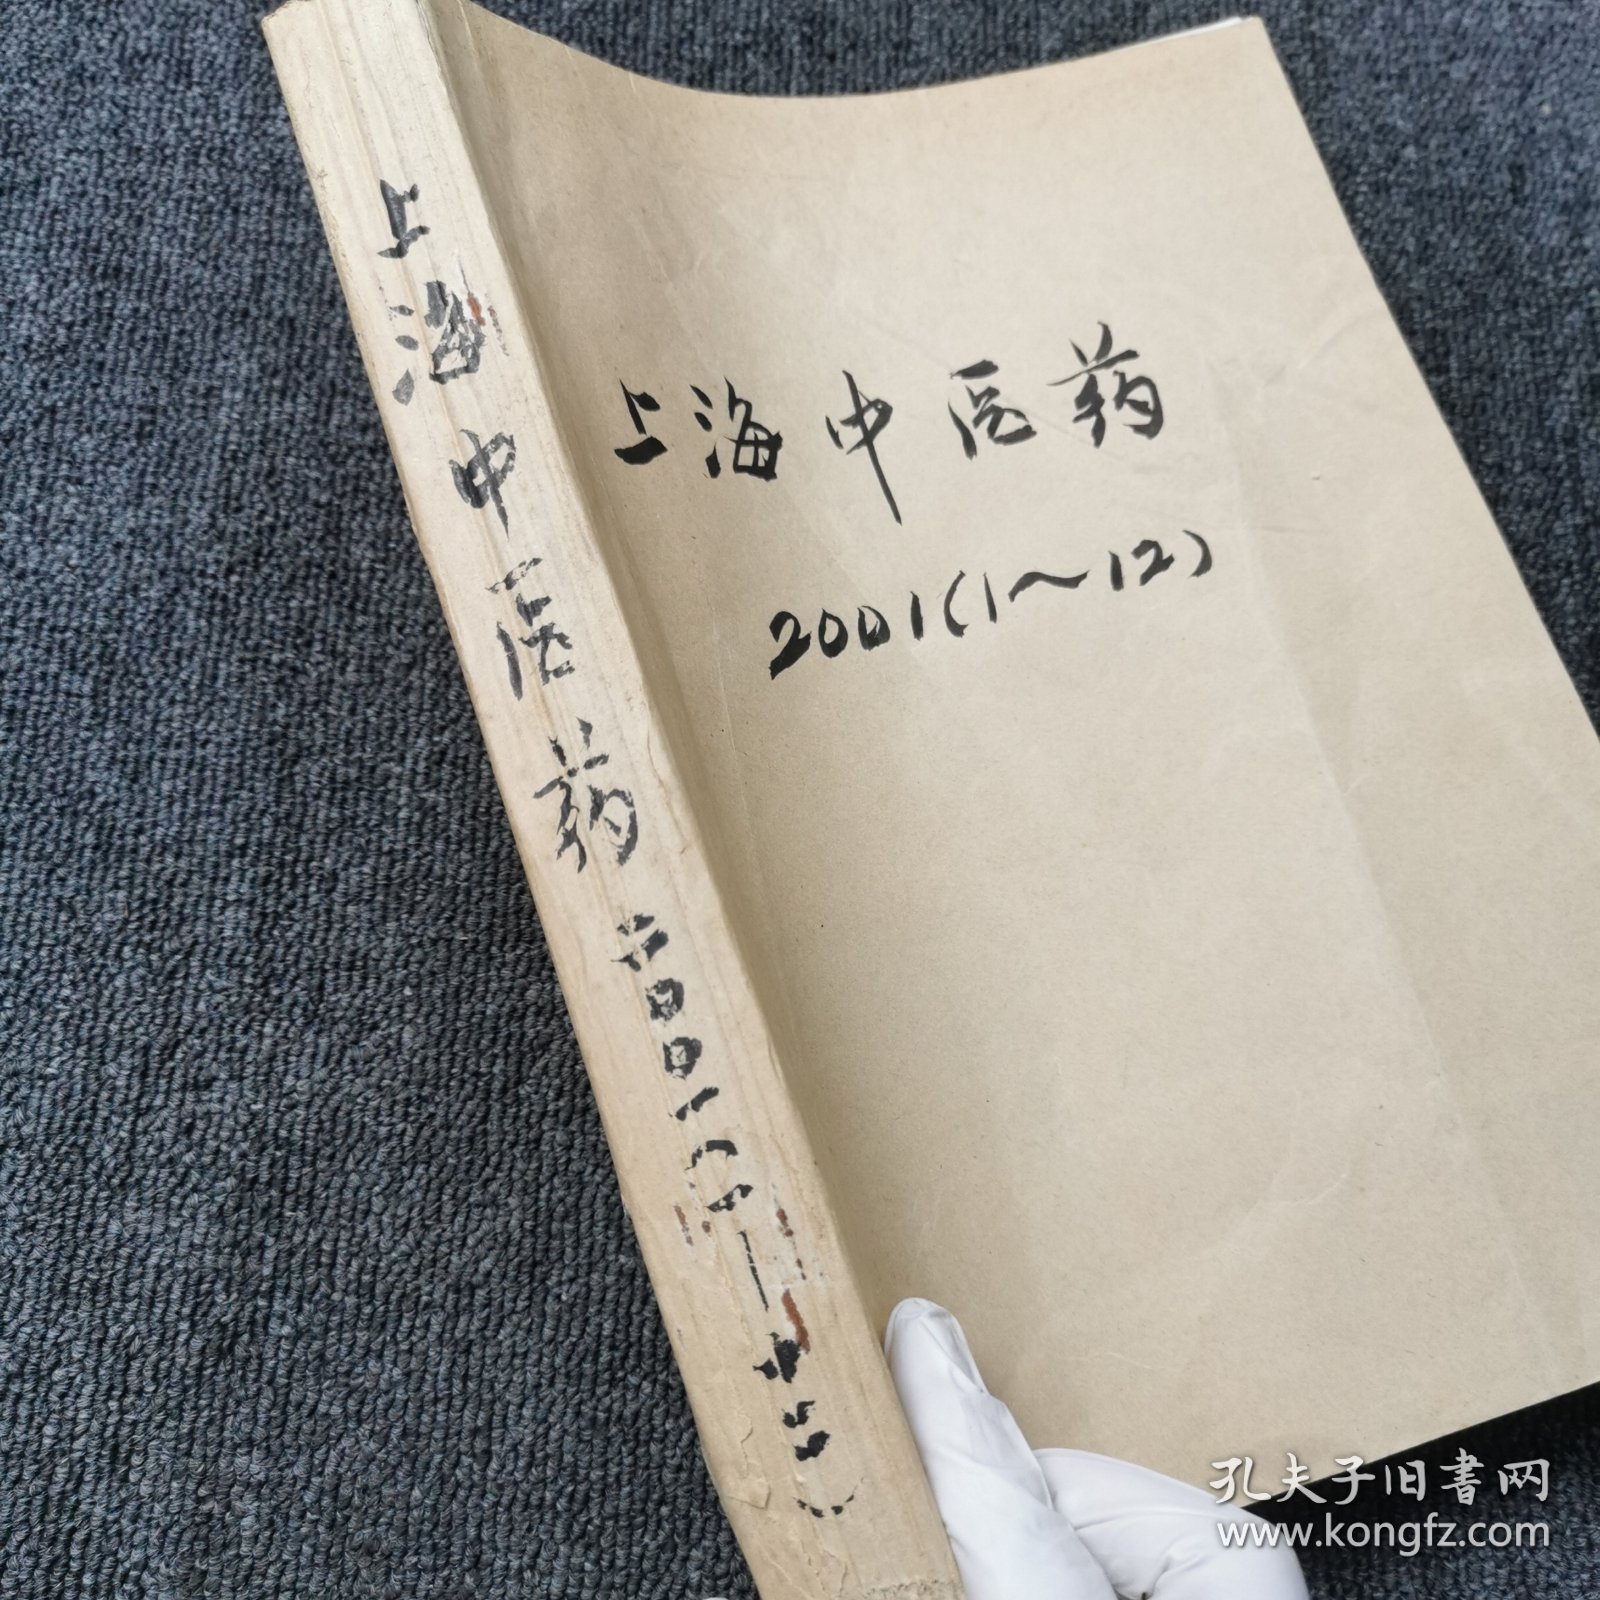 上海中医药二〇〇一(一—十二)
上海中医药
2001(1～12)
孔夫子旧書网
www.kongfz.com